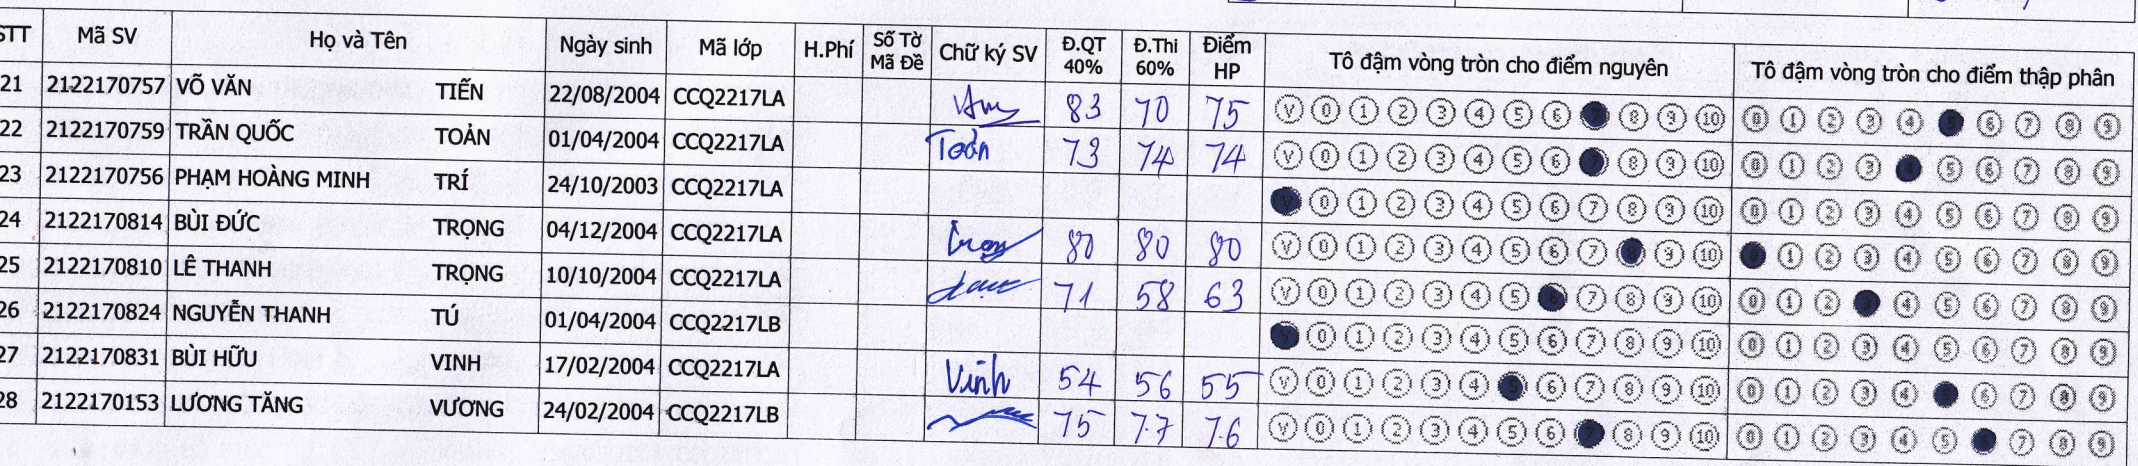 STT Mã SV Họ và Tên Ngày sinh Mã lớp H.Phí Số Tờ Mã Đề Chữ ký SV Đ.QT 40% Đ.Thi 60% Điểm HP Tô đậm vòng tròn cho điểm nguyên Tô đậm vòng tròn cho điểm thập phân
21 2122170757 VÕ VĂN TIẾN 22/08/2004 CCQ2217LA 83 70 75 V 0 1 2 3 4 5 6 7 8 9 10 0 1 2 3 4 5 6 7 8 9
22 2122170759 TRẦN QUỐC TOẢN 01/04/2004 CCQ2217LA Toản 73 74 74 V 0 1 2 3 4 5 6 7 8 9 10 0 1 2 3 4 5 6 7 8 9
23 2122170756 PHẠM HOÀNG MINH TRÍ 24/10/2003 CCQ2217LA V 0 1 2 3 4 5 6 7 8 9 10 0 1 2 3 4 5 6 7 8 9
24 2122170814 BÙI ĐỨC TRỌNG 04/12/2004 CCQ2217LA 80 80 80 V 0 1 2 3 4 5 6 7 8 9 10 0 1 2 3 4 5 6 7 8 9
25 2122170810 LÊ THANH TRỌNG 10/10/2004 CCQ2217LA 71 58 63 V 0 1 2 3 4 5 6 7 8 9 10 0 1 2 3 4 5 6 7 8 9
26 2122170824 NGUYỄN THANH TÚ 01/04/2004 CCQ2217LB V 0 1 2 3 4 5 6 7 8 9 10 0 1 2 3 4 5 6 7 8 9
27 2122170831 BÙI HỮU VINH 17/02/2004 CCQ2217LA Vinh 54 56 55 V 0 1 2 3 4 5 6 7 8 9 10 0 1 2 3 4 5 6 7 8 9
28 2122170153 LƯƠNG TĂNG VƯƠNG 24/02/2004 CCQ2217LB 75 7.7 7.6 V 0 1 2 3 4 5 6 7 8 9 10 0 1 2 3 4 5 6 7 8 9